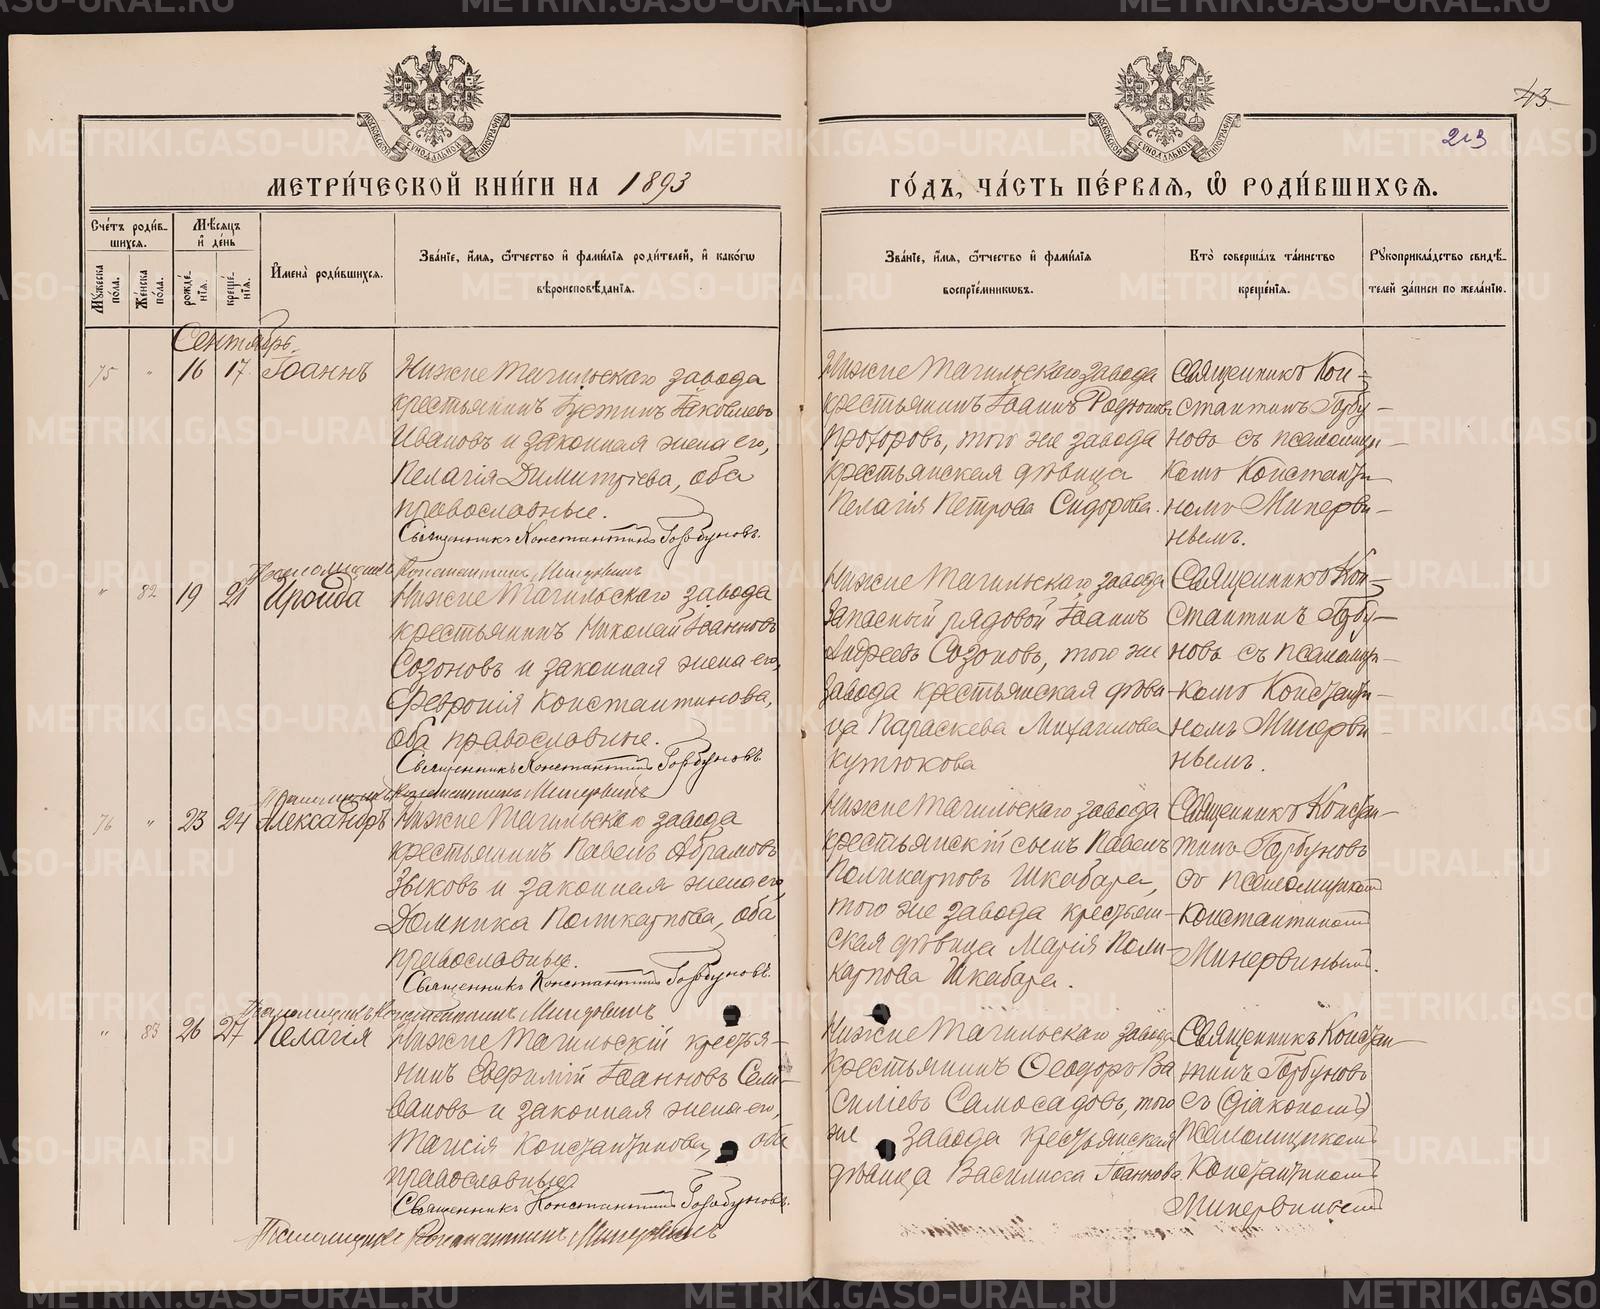 43
213
МЕТРИЧЕСКОЙ КНИГИ НА 1893
ГОДЪ, ЧАСТЬ ПЕРВАЯ, Ѡ РОДИВШИХСЯ.
Счетъ родив-
шихся.
Мужеска пола.
Женска пола.
Мѣсяцъ и день
рожденія.
крещенія.
Имена родившихся.
Званіе, имя, ѻтчество и фамилія родителей, и какогѡ
вѣроисповѣданія.
Званіе, имя, ѻтчество и фамилія
воспріемникѡвъ.
Кто совершалъ таинство
крещенія.
Рукоприкладство свидѣ-
телей записи по желанію.
Сентябрь.
75 " 16 17 Іоаннъ
Нижне Тагильскаго завода
крестьянинъ Іустинъ Іаковлевъ
Ивановъ и законная жена его,
Пелагія Димитріева, оба
православные.
Священникъ Константинъ Горбуновъ.
Псаломщикъ Константинъ Минервинъ
Нижне Тагильскаго завода
крестьянинъ Іоаннъ Родіоновъ
Прохоровъ, того же завода
крестьянская дѣвица
Пелагія Петрова Сидорова.
Священникъ Кон-
стантинъ Горбу-
новъ съ псаломщи-
комъ Константи-
номъ Минерви-
ньемъ.
" 82 19 21 Ироида
Нижне Тагильскаго завода
крестьянинъ Николай Іоанновъ
Созоновъ и законная жена его,
Феѵронія Константинова,
оба православные.
Священникъ Константинъ Горбуновъ
Псаломщикъ Константинъ Минервинъ
Нижне Тагильскаго завода
запасный рядовой Іоаннъ
Андреевъ Созоновъ, того же
завода крестьянская дѣви-
ца Параскева Михаилова
Кутюкова
Священникъ Кон-
стантинъ Горбу-
новъ съ псаломщи-
комъ Константи-
номъ Минерви-
ньемъ.
76 " 23 24 Александръ
Нижне Тагильскаго завода
крестьянинъ Павелъ Абрамовъ
Зыковъ и законная жена его,
Домника Поликарпова, оба
православные.
Священникъ Константинъ Горбуновъ.
Псаломщикъ Константинъ Минервинъ
Нижне Тагильскаго завода
крестьянскій сынъ Павелъ
Поликарповъ Шкабара,
того же завода крестьян-
ская дѣвица Марія Поли-
карпова Шкабара.
Священникъ Констан-
тинъ Горбуновъ
съ псаломщикомъ
Константиномъ
Минервинымъ.
" 83 26 27 Пелагія
Нижне Тагильскій крестья-
нинъ Іоанновъ Сели-
вановъ и законная жена его,
Таисія Константинова, оба
православные
Священникъ Константинъ Горбуновъ.
Псаломщикъ Константинъ Минервинъ
Нижне Тагильскаго завода
крестьянинъ Ѳеодоръ Ва
силіевъ Самосадовъ, того
же завода крестьянская
дѣвица Василиса Іоаннова
Священникъ Констан-
тинъ Горбуновъ
съ (діакономъ)
псаломщикомъ
Константиномъ
Минервинымъ
METRIKI.GASO-URAL.RU